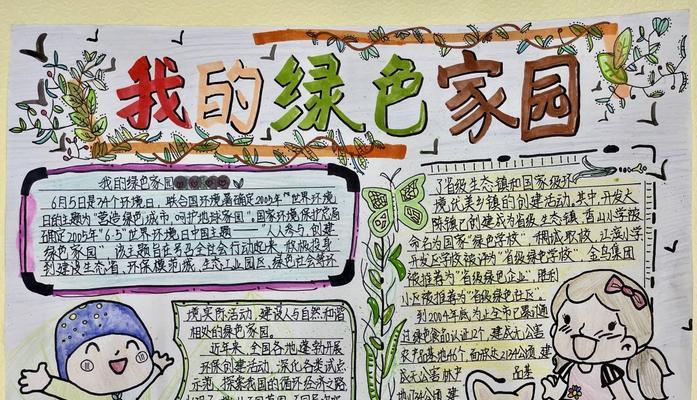 我的绿色家园
我的绿色家园
6月5日是34个环境日,联合国环境署确定2005年"世界环境
日的主题为"营造绿色城市,呵护地球家园",国家环境保护总局
确定2005年"6·5"世界环境日中国主题——"人人参与,创建
绿色家园",该主题旨在号召全社会行动起来,积极投身
到建设生态省、环保模范城、生态工业园区、绿色社会等环
境实所活动,建设人与自然和谐
相处的绿色家园。
近年来,全国各地蓬勃开展
环保创建活动,深化各类试点
示范,探索我国的循环经济之路
了省级生态镇和国家级环
境优美乡镇的创建活动,其中,开发大
命名为国家"绿色学校",
开发区学校被评为"省级绿色学校",
被推荐为"省级绿色企业",胜利
小区被推荐为"省级绿色社区"。
到2004年底,为止全市已累计通
过绿色食品认证12个,建成无公害
农产品基地46个,面积达
成无公害
基